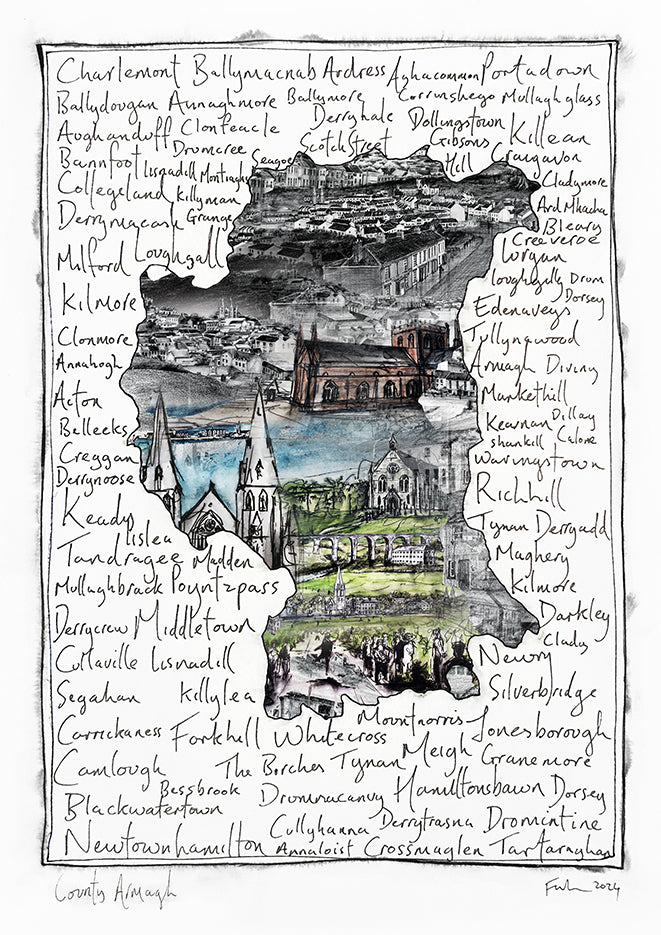 Charlemont Ballymacnab Ardress Aghacommon Portadown
Ballydougan Annaghmore Ballymore Corrinshego Mullaghglass
Aughanduff Clonfeacle Derryhale Dollingstown Killean
Bannfoot Drumcree Scotch Street Gibsons Hill Craigavon
Lisnadill Montiaghs Seagoe Cladymore
Collegeland Killyman Ard Mhacha
Derrymacash Grange Bleary
Creeveroe
Milford Loughgall Lurgan
Loughgilly Drum
Kilmore Edenaveys Dorsey
Clonmore Tullynawood
Annahagh Armagh Diviny
Acton Markethill
Belleeks Kearnan Dillay
Creggan Shankill Calone
Derrynoose Waringstown
Keady Richhill
Lislea Tynan Derryadd
Tandragee Madden Maghery
Mullaghbrack Poyntzpass Kilmore
Derrycrew Middletown Darkley
Clady
Cullaville Lisnadill Newry
Segahan Killylea Silverbridge
Carrickaness Forkhill Whitecross Mountnorris Jonesborough
Camlough The Birches Tynan Meigh Granemore
Blackwatertown Bessbrook Drumnacanvy Hamiltonsbawn Dorsey
Newtownhamilton Cullyhanna Derrytrasna Dromintine
Annaloist Crossmaglen Tartaraghan
County Armagh
2024